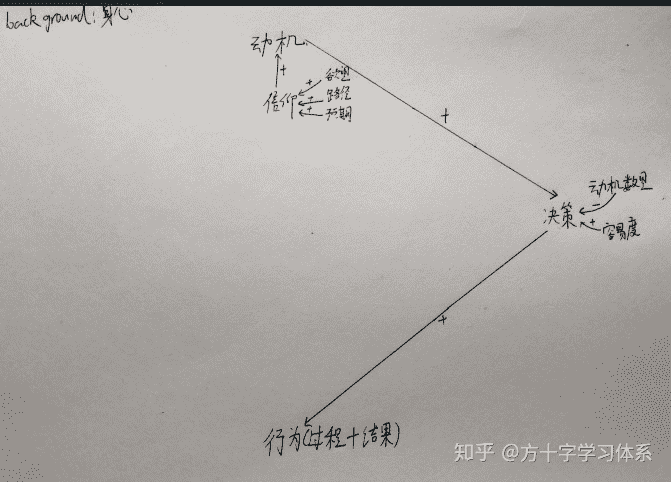 background: 身心
动机
+
+
欲望
信仰
-
路径
+
预期
+
动机数量
-
决策
+
容易度
+
行为(过程+结果)
知乎 @方十字学习体系